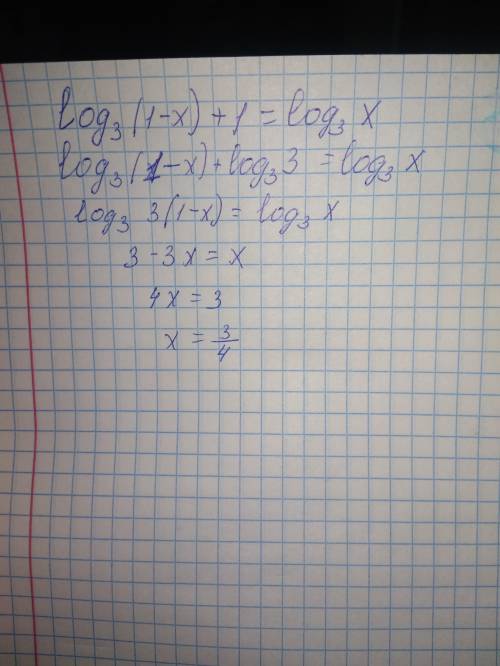 log₃(1-x)+1=log₃x
log₃(1-x)+log₃3=log₃x
log₃ 3(1-x)=log₃x
3-3x=x
4x=3
x=3/4